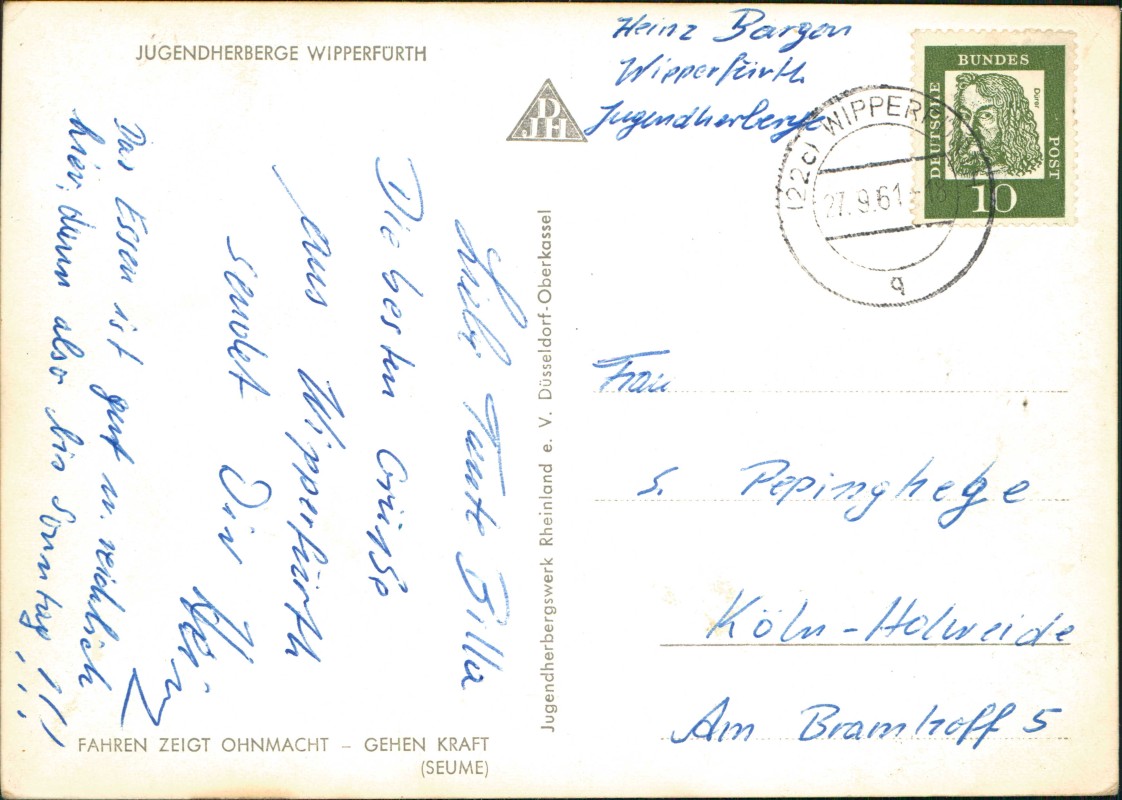 JUGENDHERBERGE WIPPERFÜRTH
Liebe Tante Billa
Die besten Grüße
Aus Wipperfürth
sendet Dir
Heinz
Das Essen ist gut u. reichlich
hier, dann also bis Sonntag!!!
FAHREN ZEIGT OHNMACHT – GEHEN KRAFT
(SEUME)
DJH
Jugendherbergswerk Rheinland e. V. Düsseldorf-Oberkassel
Heinz Bargon
Wipperfürth
Jugendherberge
DEUTSCHE
BUNDES
POST
Dürer
10
(22c) WIPPERF
27.9.61
q
Frau
S. Pepinghege
Köln-Holweide
Am Bramhoff 5